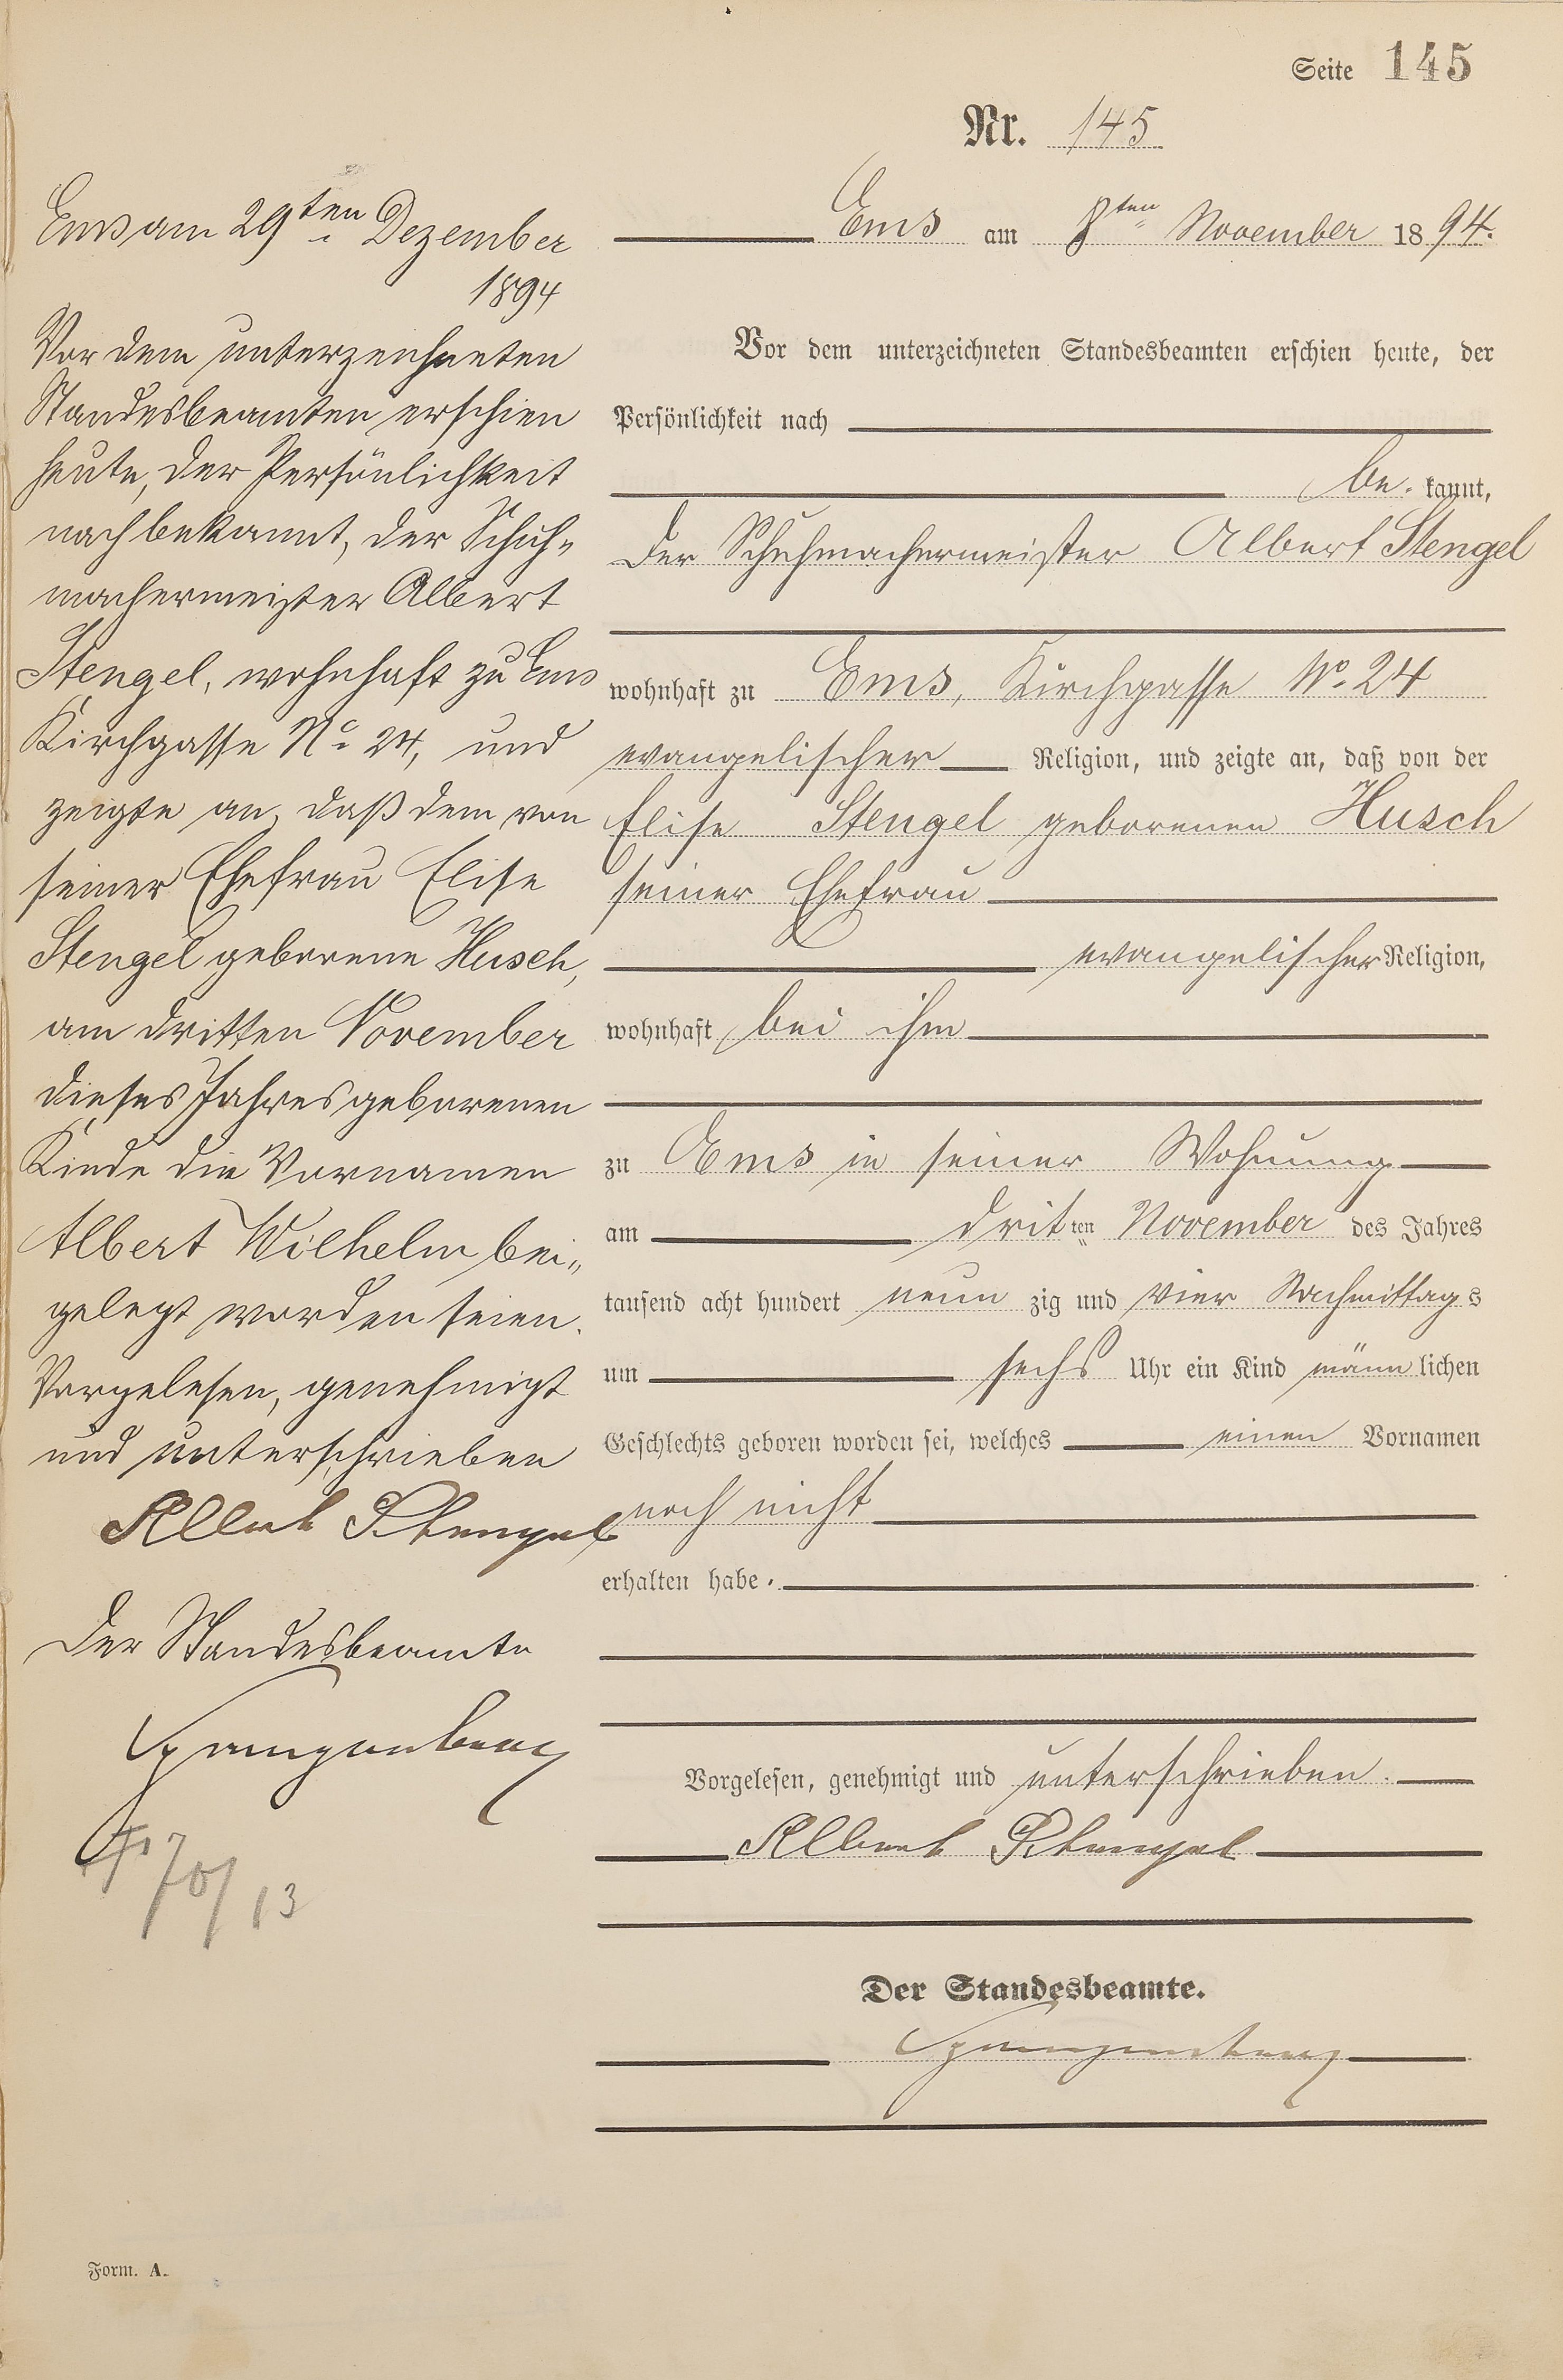 Seite 145
Nr. 145
Ems am 8ten November 1894.
Vor dem unterzeichneten Standesbeamten erschien heute, der
Persönlichkeit nach
be. kannt,
der Schuhmachermeister Albert Stengel
wohnhaft zu Ems, Kirchgasse No. 24
evangelischer Religion, und zeigte an, daß von der
Elise Stengel geborenen Husch
seiner Ehefrau
evangelischer Religion,
wohnhaft bei ihm
zu Ems in seiner Wohnung
am dritten November des Jahres
tausend acht hundert neun zig und vier Nachmittags
um sechs Uhr ein Kind männlichen
Geschlechts geboren worden sei, welches einen Vornamen
noch nicht
erhalten habe.
Vorgelesen, genehmigt und unterschrieben.
Albert Stengel
Der Standesbeamte.
Spangenberg
Ems am 29ten Dezember
1894
Vor dem unterzeichneten
Standesbeamten erschien
heute, der Persönlichkeit
nach bekannt, der Schuh-
machermeister Albert
Stengel, wohnhaft zu Ems
Kirchgasse No. 24, und
zeigte an, daß dem von
seiner Ehefrau Elise
Stengel geborene Husch,
am dritten November
dieses Jahres geborenen
Kinde die Vornamen
Albert Wilhelm bei-
gelegt worden seien.
Vorgelesen, genehmigt
und unterschrieben
Albert Stengel
Der Standesbeamte
Spangenberg
70/13
Form. A.